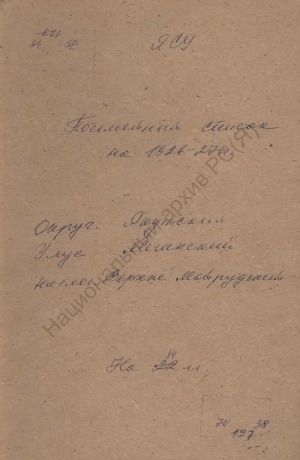 ЯСУ
Посемейный список
на 1926-27г
Округ. Якутский
Улус Мегинский
Наслег Верхне
На 22 лл.
70 38
127
Национальный архив РС(Я)